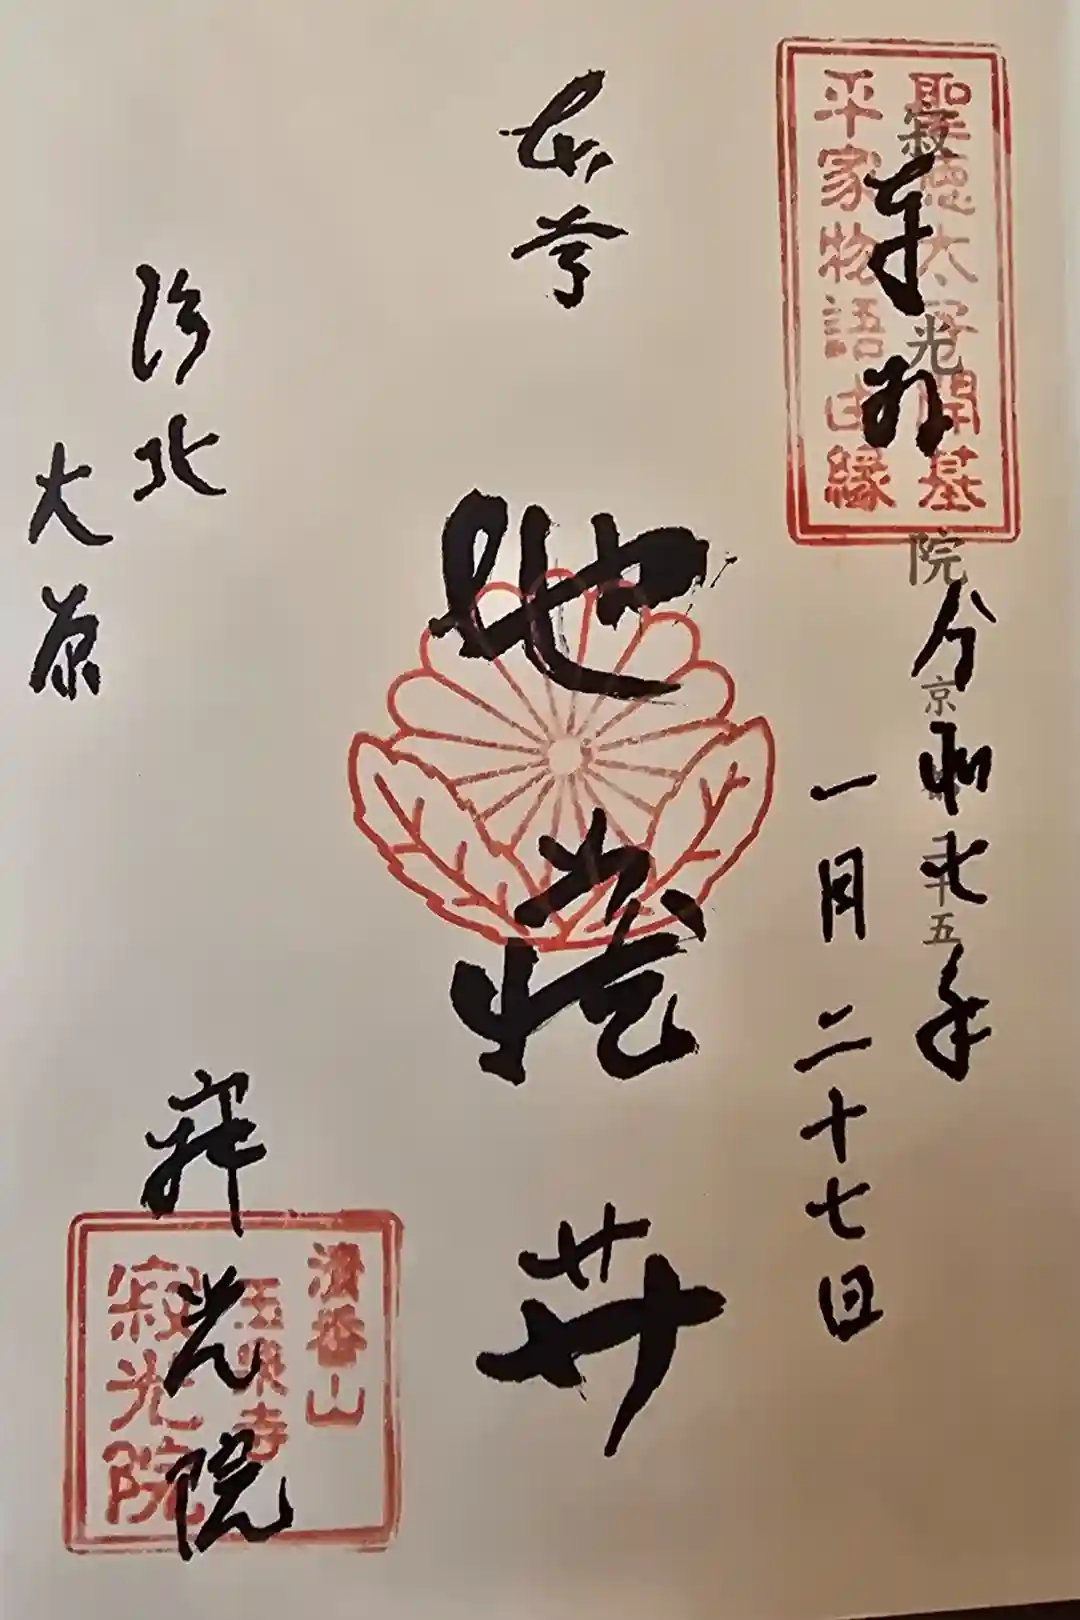 聖徳太子開基
平家物語由縁
奉拝
寂光院
令和七年
一月二十七日
本尊
地蔵𦬇
洛北
大原
寂光院
清香山
玉泉寺
寂光院